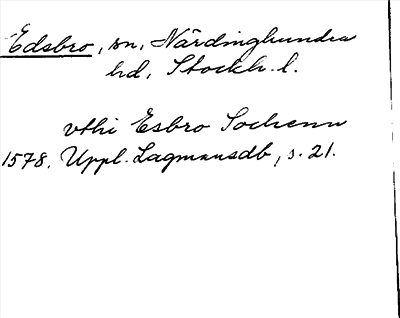 Edsbro, sn, Närdinghundra
hd, Stockh. l.
vthi Esbro Sochenn
1578. Uppl. Lagmansdb, s. 21.